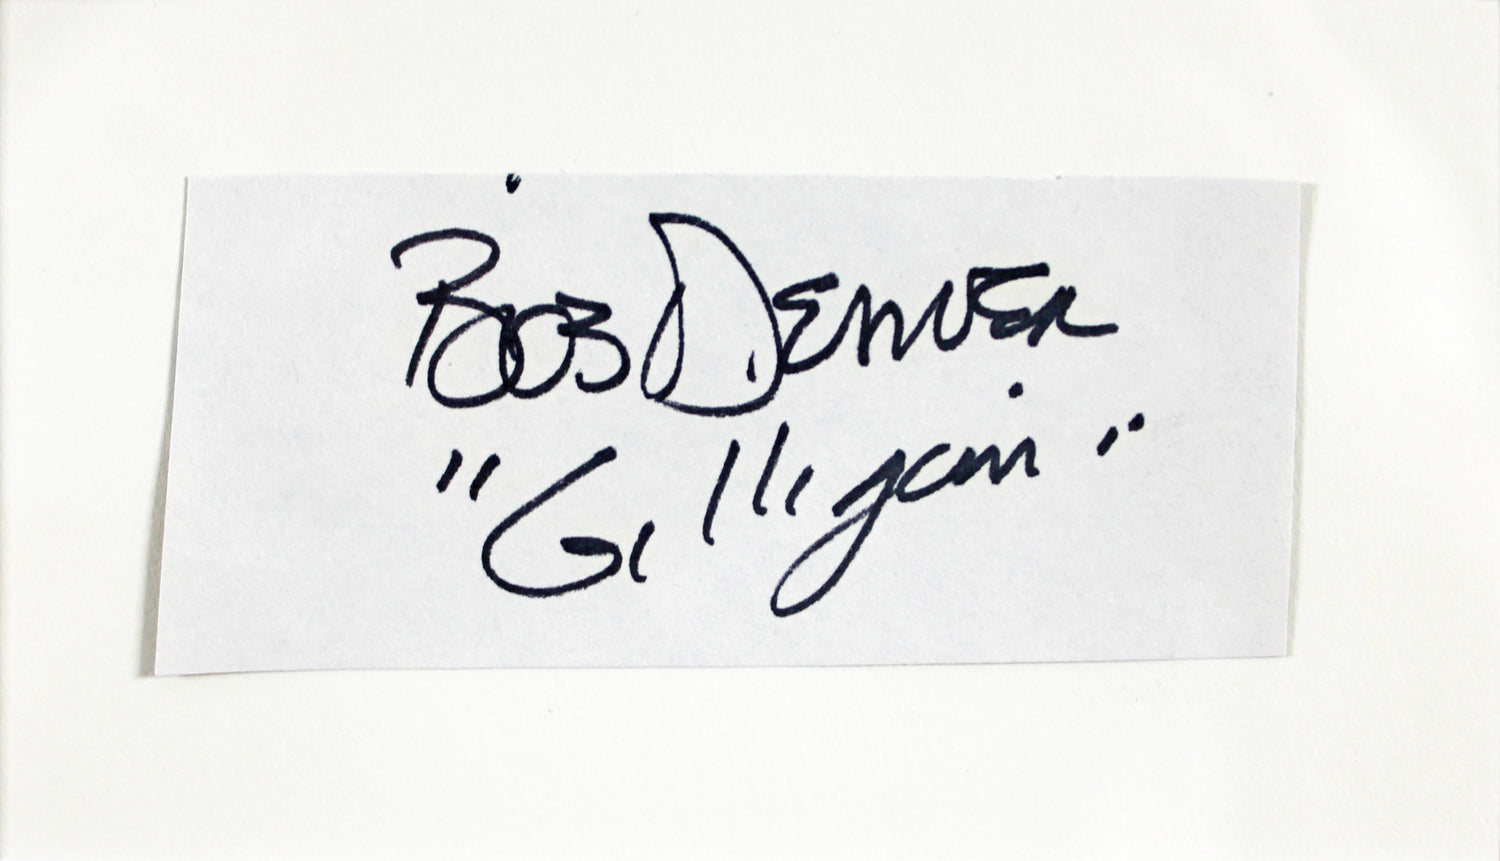 Bob DENVER
"Gilligan"